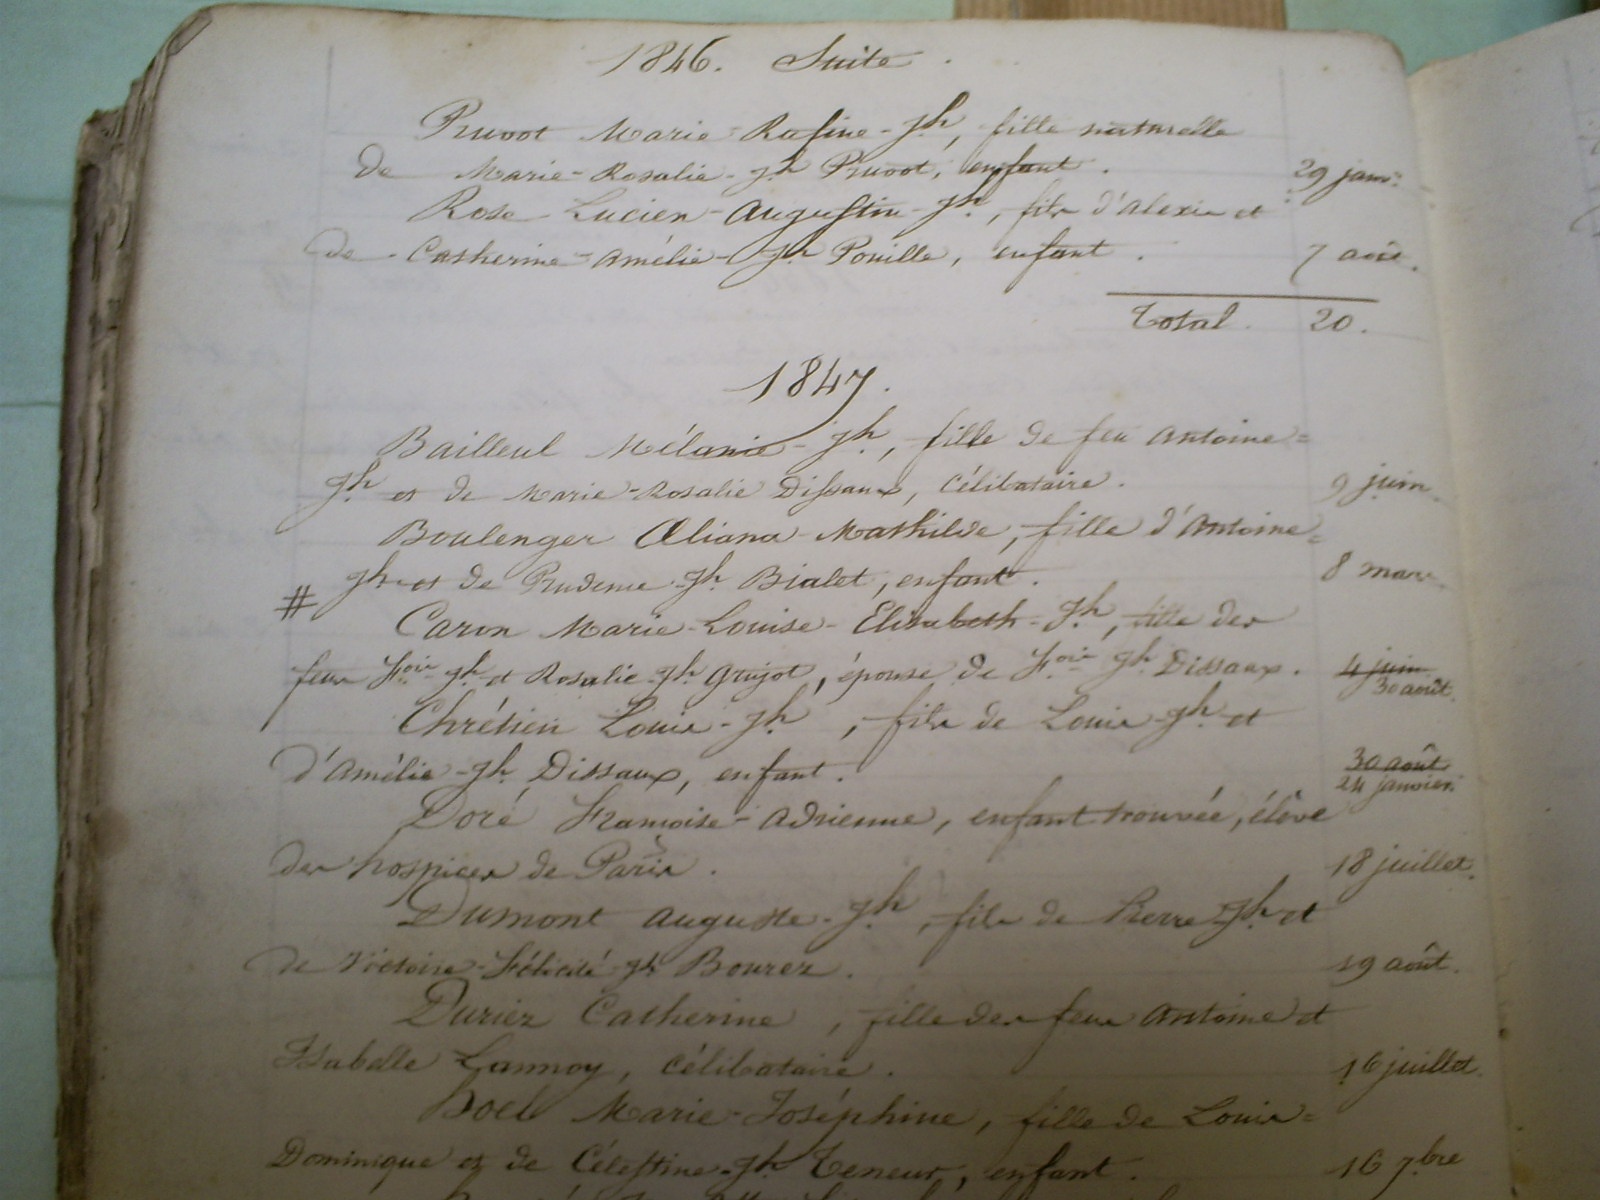 1846. Suite.
Pruvot Marie-Rosine-Jh, fille naturelle
de Marie-Rosalie-Jh Pruvot, enfant. 29 janv.
Rose Lucien-Augustin-Jh, fils d'Alexis et
de Catherine-Amélie-Jh Pouille, enfant. 7 août.
Total. 20.
1847.
Bailleul Mélanie-Jh, fille de feu Antoine=
Jh et de Marie-Rosalie Dissaux, célibataire. 9 juin.
Boulenger Æliana-Mathilde, fille d'Antoine=
Jh et de Prudence-Jh Bialet, enfant. 8 mars.
#
Caron Marie-Louise-Elisabeth-Jh, fille des
feux Fois Jh et Rosalie-Jh Grujot, épouse de Fois Jh Dissaux. 4 juin
30 août.
Chrétien Louis-Jh, fils de Louis-Jh et
d'Amélie-Jh Dissaux, enfant. 30 août.
24 janvier.
Doré Françoise-Adrienne, enfant trouvée, élève
des hospices de Paris. 18 juillet.
Dumont Auguste-Jh, fils de Pierre-Jh et
de Victoire-Félicité-Jh Bourez. 19 août.
Duriez Catherine, fille des feux Antoine et
Isabelle Lannoy, célibataire. 16 juillet.
Hoel Marie-Joséphine, fille de Louis=
Dominique et de Célestine-Jh Teneur, enfant. 16 7.bre